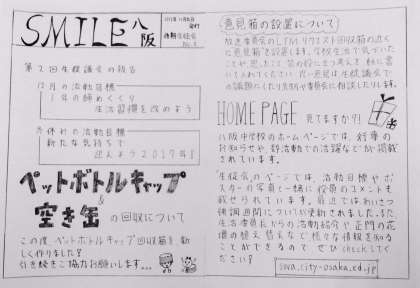 SMILE 八阪
発行
後期生徒会
第7回生徒議会の報告
12月の活動目標
1年の締めくくり
生活習慣を改めよう
冬休みの活動目標
新たな気持ちで
迎えよう2017年!
ペットボトルキャップ
&
空き缶 の回収について
この度、ペットボトルキャップ回収箱を新
しく作りました!!
引き続きご協力お願いします...
意見箱の設置について
放送委員会のLTMリクエストBOX収
に意見箱を設置します。学校生活で気づいた
ことや思ったこと
書いて入れてください。
の議題にしたり各専門委員会に相談したりします。
HOME PAGE 見てますか?!
八阪中学校のホームページでは、行事の
お知らせや、部活動での活躍などが掲載
されています。
生徒会のページでは、活動目標やポ
スターの写真と一緒に役員のコメントも
載せられています。最近ではあいさつ
強調週間についてが更新されました。また、
生活委員だからの活動紹介や正門の花
壇の植え替えなど様々な情報を知る
ことができるので、ぜひcheckしてく
ださい!
swa.city-osaka.ed.jp